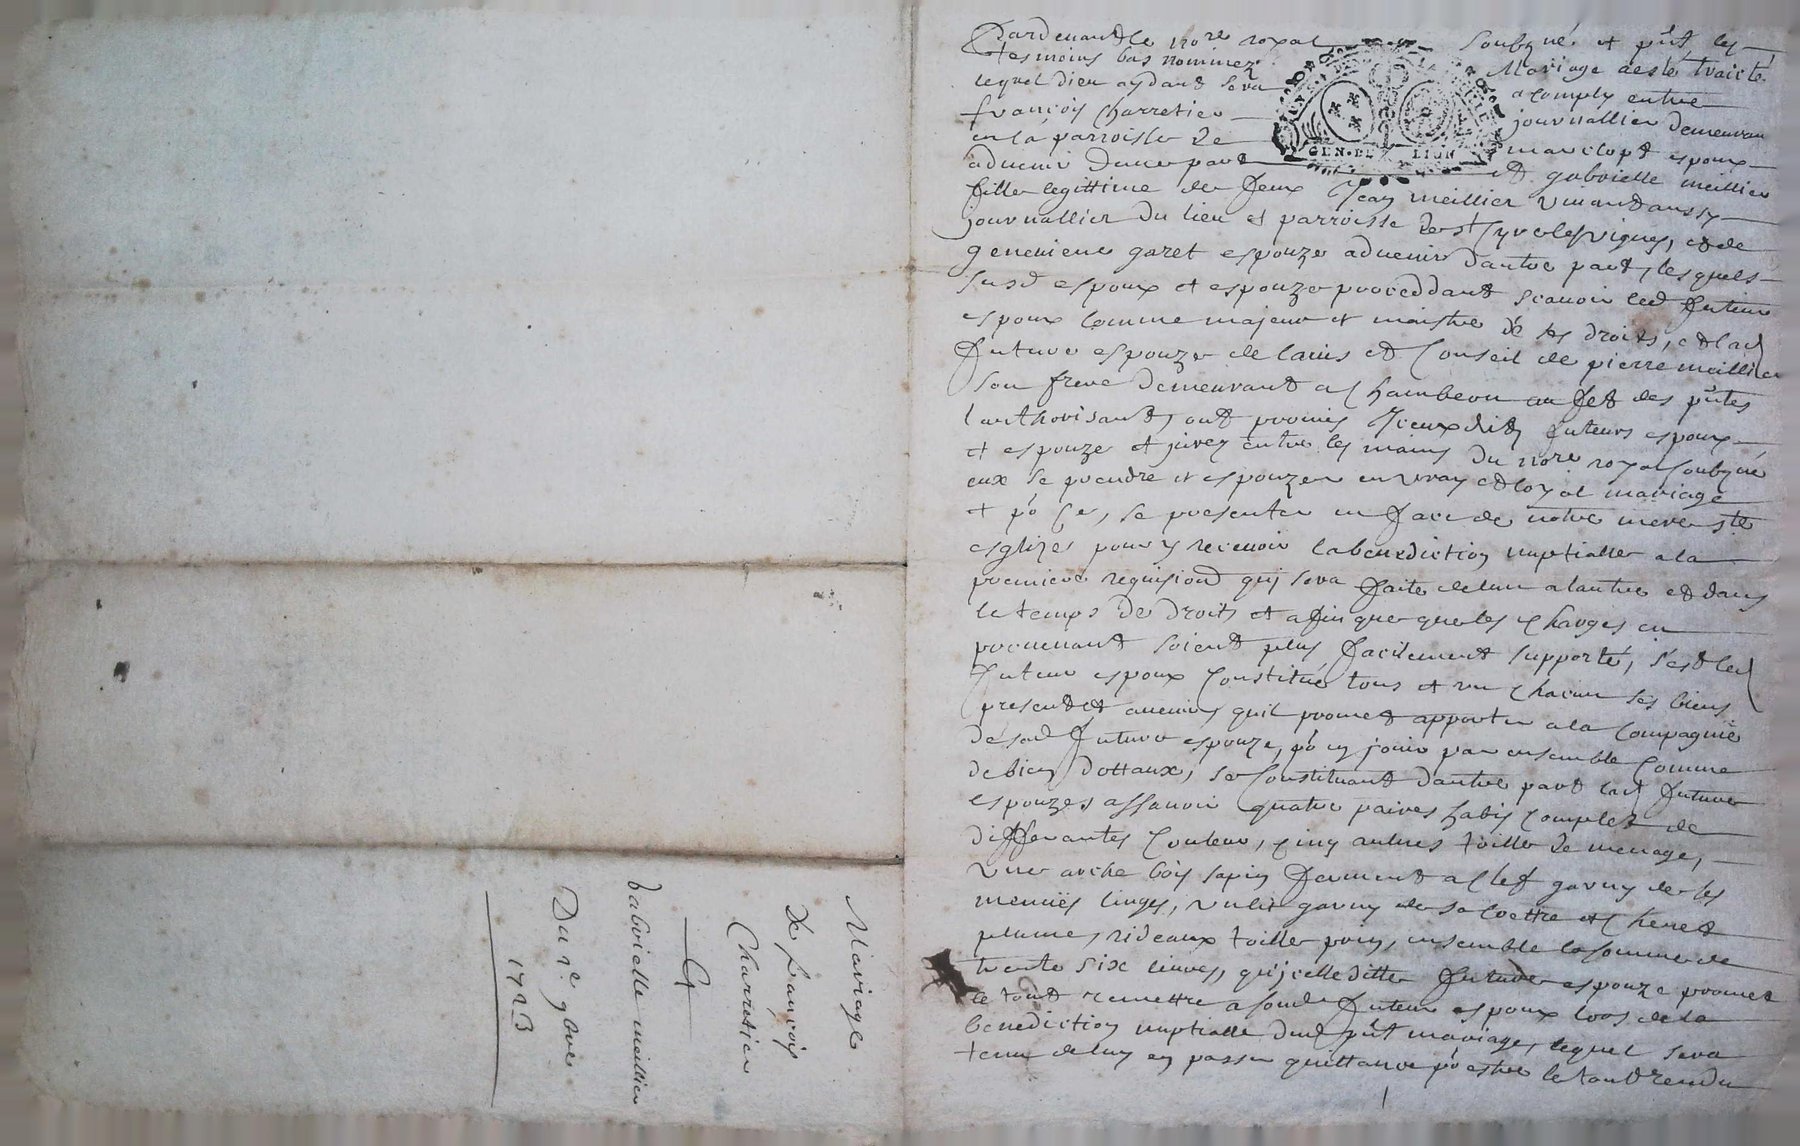 Mariage
De françois
Charretier
Et
Gabrielle meillier
Du 1er 9bre
1723
Pardevant le nore royal soubzné et pnt les
tesmoins bas nommez Mariage a esté traicté
lequel dieu aydant sera acomply entre
françois Charretier journallier demeurant
en la parroisse de marclopt espoux
advenir dune part Et gabrielle meillier
fille legittime de feux Jean meillier vivant aussy
journallier du lieu et parroisse de st Cyr les vignes, et de
genevieve garet espouze advenir dautre part, lesquels
susd espoux et espouze proceddant scavoir led futeur
espoux comme majeur et maistre de ses droits, et lad
future espouze de lavis et Conseil de pierre meillier
son frere demeurant a Chambeon au fet des pntes
lauthorisant, ont promis Iceuxdits futeurs espoux
et espouze et jurez entre les mains du nore royal soubzné
eux se prendre et espouzer en vray et loyal mariage
et po ce, se presenter en face de notre mere ste
esglize pour y recevoir la benediction nuptialle a la
premiere requision qui sera faite de lun a lautre et dans
le temps de droits et afin que les charges en
provenant soient plus facilement supporté, sest led
futeur espoux Constitué tous et un chacun ses biens
present et avenir quil promet apporter a la Compagnie
de sad future espouze, po en jouir par ensemble comme
de bien dottaux, se Constituant dautre part lad future
espouze assavoir quatre paires habis complet de
differantes Couleur, cinq aulnes toille de menage,
Une arche bois sapin fermant a clef garny de ses
menuës linges, un lit garny de sa coettre et chevet
plume, rideaux toille ensemble la somme de
trente six livres, quicelle ditte future espouze promet
le tout remettre a sond futeur espoux lors de la
benediction nuptialle dud pnt mariage, lequel sera
tenu de luy en passer quittance po estre le tout rendu